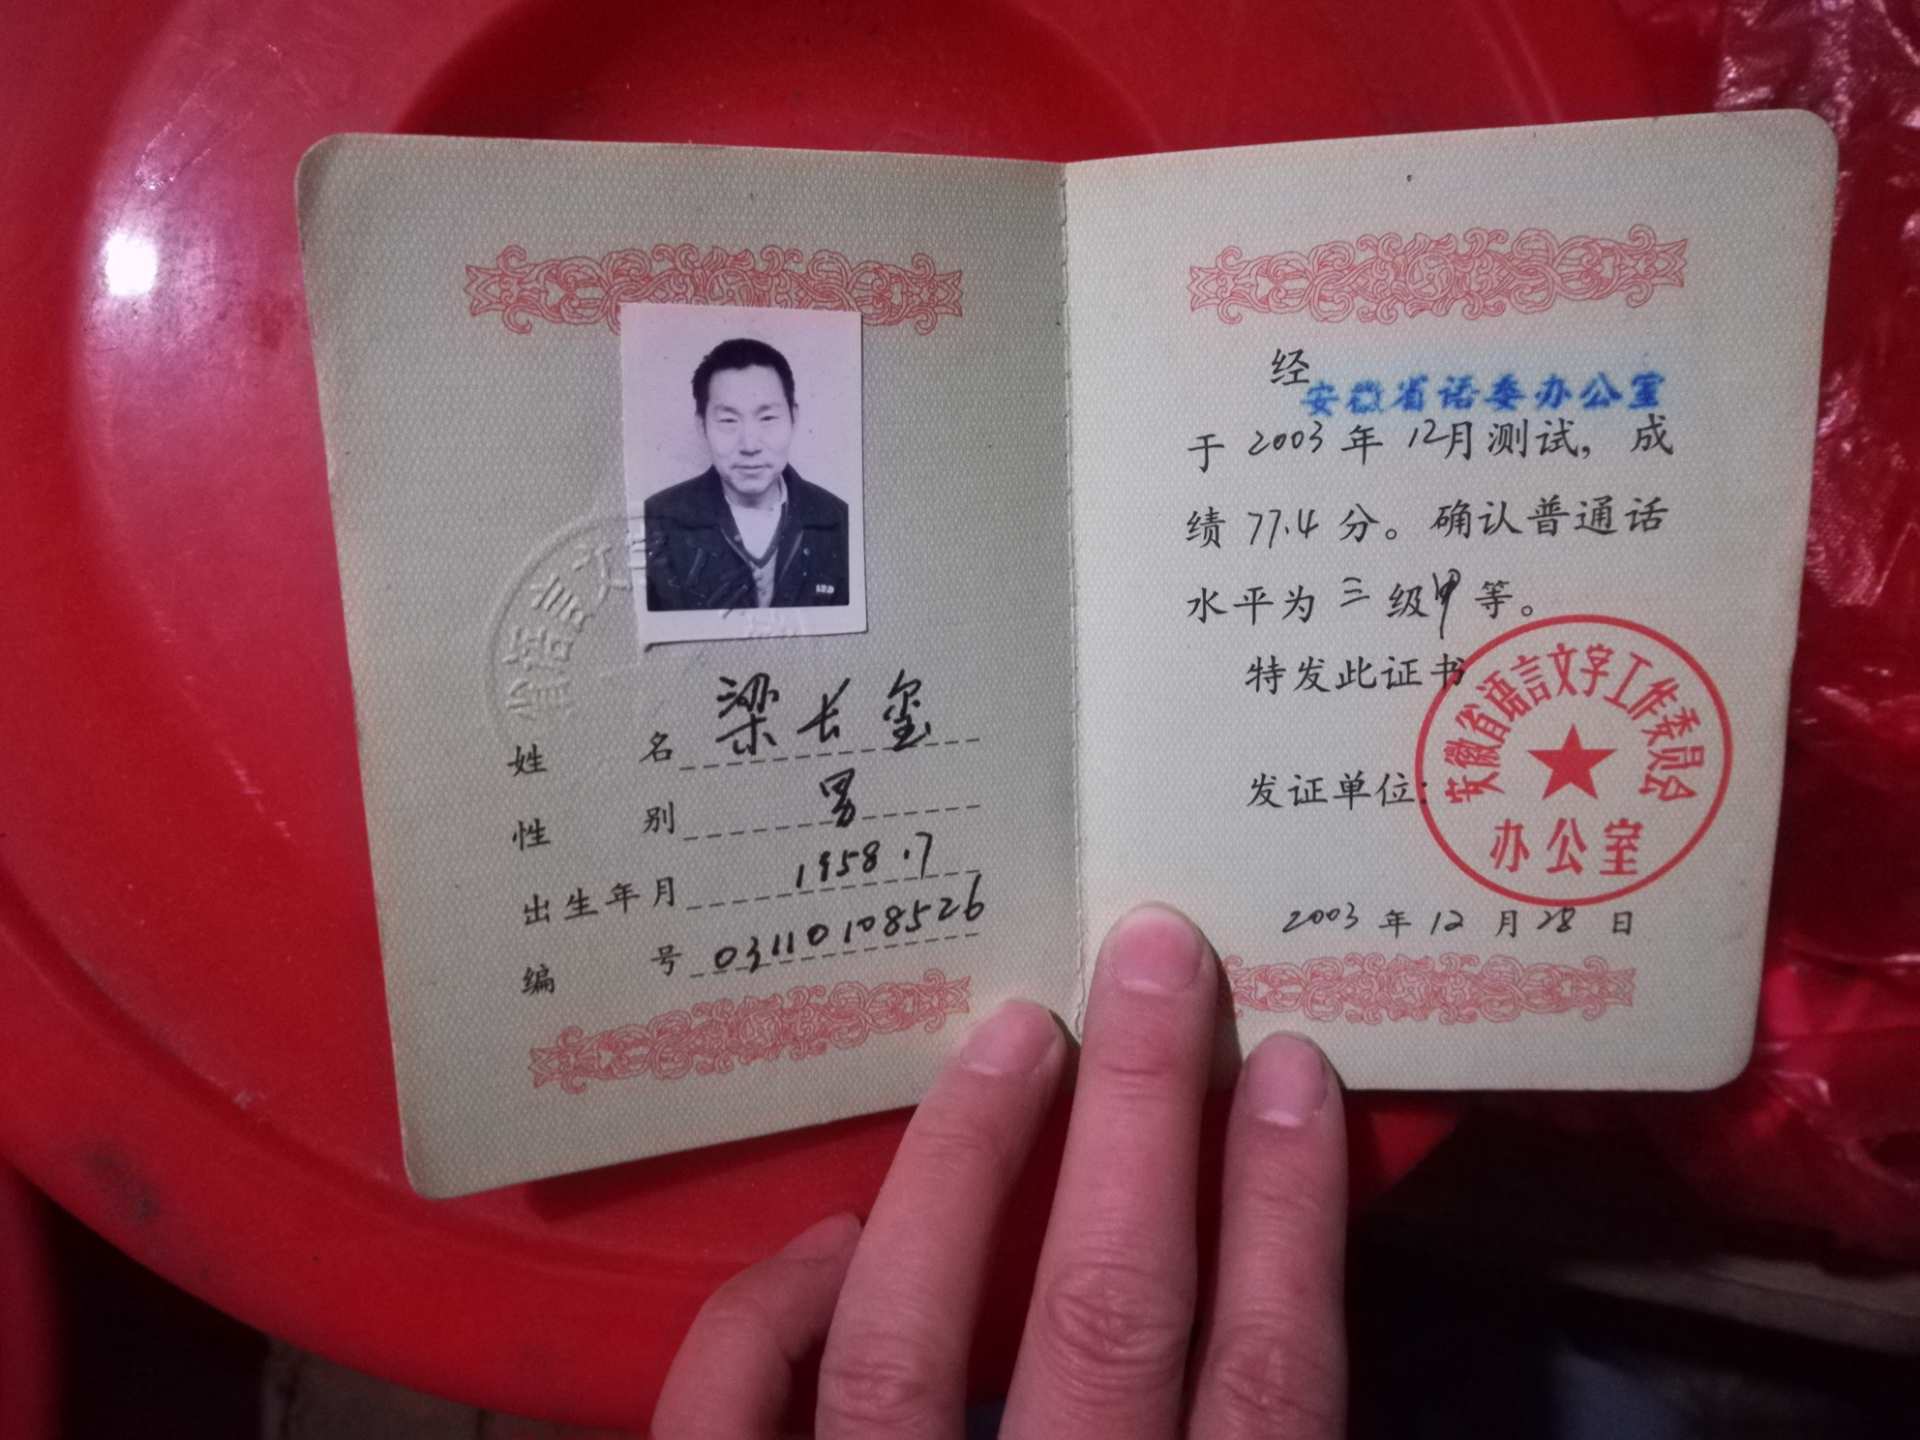 省语言文字
姓 名 梁长玺
性 别 男
出生年月 1958.7
编 号 03110108526
经 安徽省语委办公室
于 2003 年 12月测试，成
绩 77.4 分。确认普通话
水平为 三 级甲等。
特发此证书
发证单位：
安徽省语言文字工作委员会
办公室
2003 年 12 月 28 日